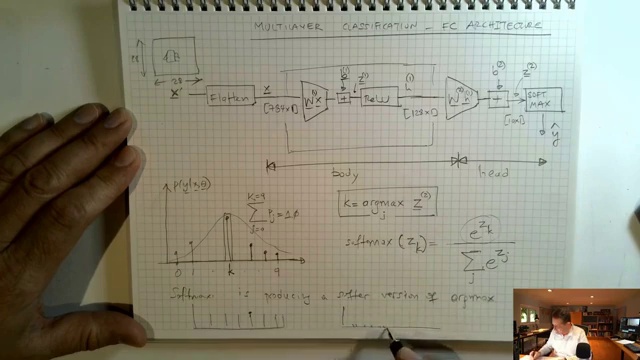 MULTILAYER CLASSIFICATION - FC ARCHITECTURE
28
28
x
Flatten
x
[784x1]
W⁽¹⁾x
b⁽¹⁾
+
z⁽¹⁾
ReLU
h⁽¹⁾
[128x1]
W⁽²⁾h⁽¹⁾
b⁽²⁾
+
z⁽²⁾
[10x1]
SOFT
MAX
ŷ
body
head
p(y|x,θ)
K=9
Σ ŷj = 1.0
j=0
0 1 k 9
K = argmax z⁽²⁾
j
softmax (zk) = e^zk
Σ e^zj
j
Softmax is producing a softer version of argmax